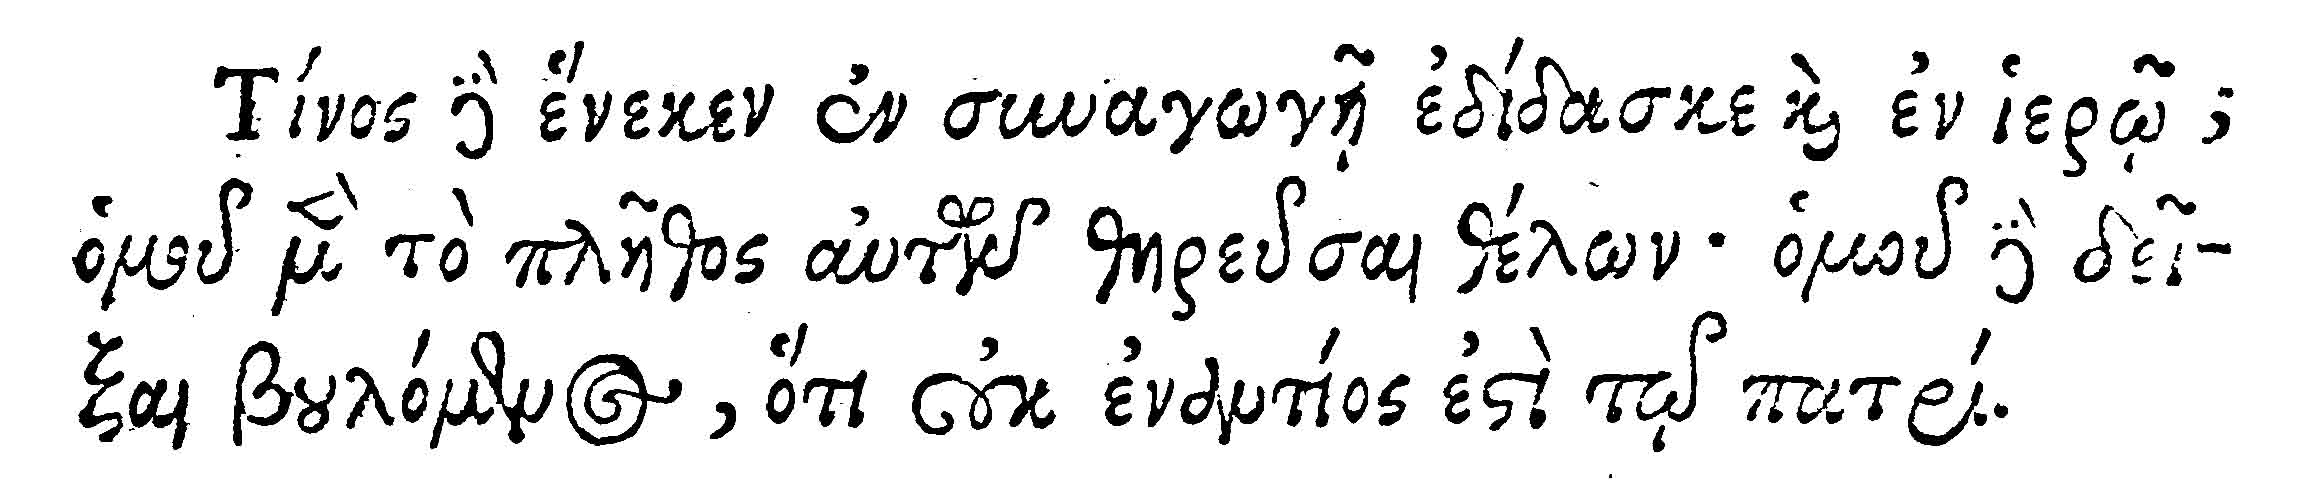 Τίνος δὲ ἕνεκεν ἐν συναγωγῇ ἐδίδασκε καὶ ἐν ἱερῷ;
ὁμοῦ μὲν τὸ πλῆθος αὐτῶν θηρεῦσαι θέλων· ὁμοῦ δὲ δεῖ-
ξαι βουλόμενος, ὅτι οὐκ ἐναντίος ἐστὶ τῷ πατρί.